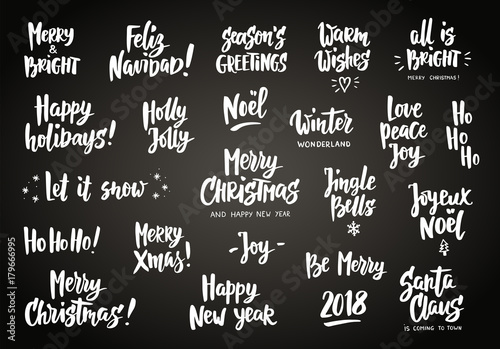 Merry
&
BRIGHT
Feliz
Navidad!
SEASON'S
GREETINGS
Warm
Wishes
all is
BRIGHT
MERRY CHRISTMAS!
Happy
holidays!
Holly
Jolly
Noël
Winter
WONDERLAND
Love
peace
Joy
Ho
Ho
Ho
Let it snow
Merry
CHRISTMAS
AND HAPPY NEW YEAR
Jingle
Bells
Joyeux
NOËL
Ho Ho Ho!
Merry
Xmas!
- Joy -
Be Merry
Merry
Christmas!
Happy
New Year
2018
Santa
Claus
IS COMING TO TOWN
© 179666995